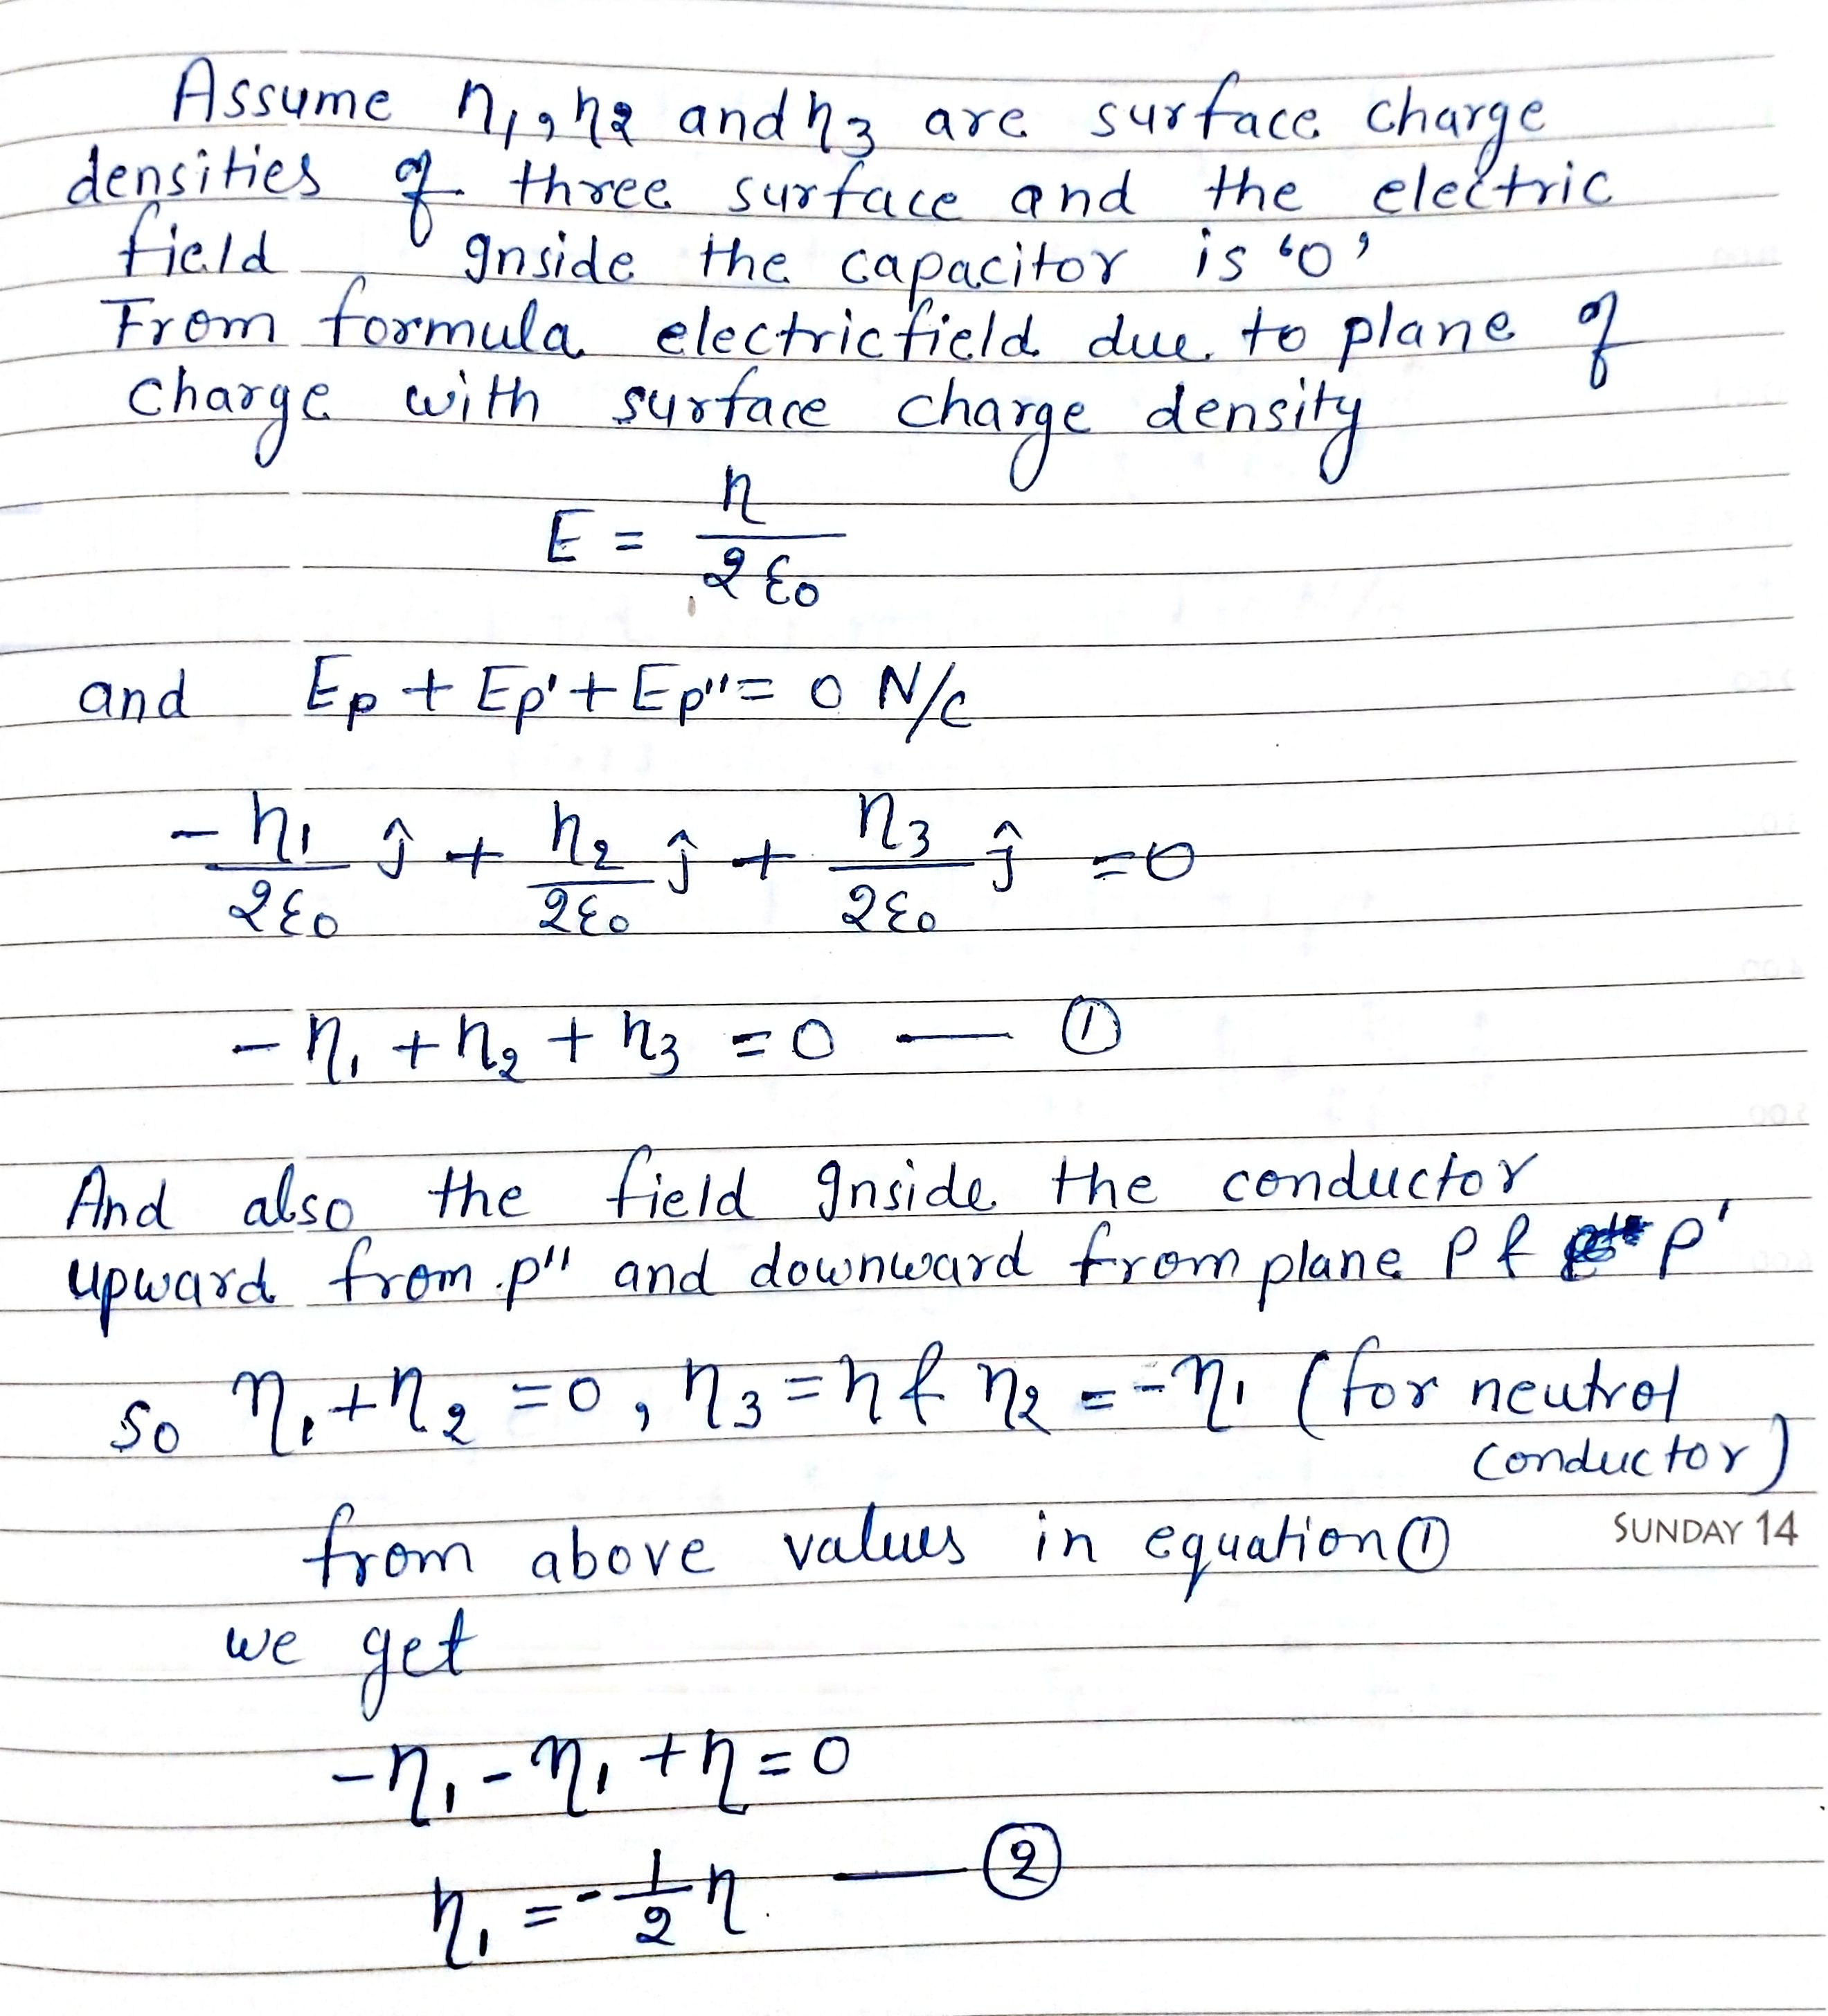 Assume η1, η2 and η3 are surface charge
densities of three surface and the electric
field Inside the capacitor is '0'
From formula electric field due to plane of
charge with surface charge density
E = η / 2ε0
and Ep + Ep' + Ep'' = 0 N/C
-η1/2ε0 ĵ + η2/2ε0 ĵ + η3/2ε0 ĵ = 0
-η1 + η2 + η3 = 0 — ①
And also the field Inside the conductor
upward from p'' and downward from plane P & p'
so η1 + η2 = 0, η3 = η & η2 = -η1 (for neutral
conductor)
SUNDAY 14
from above values in equation ①
we get
-η1 - η1 + η = 0
η1 = -1/2 η. — ②